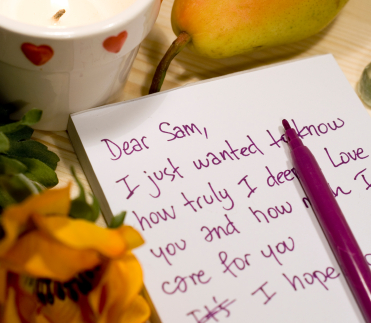 Dear Sam,
I just wanted to know
how truly I Love
you and how much I
care for you
It's I hope